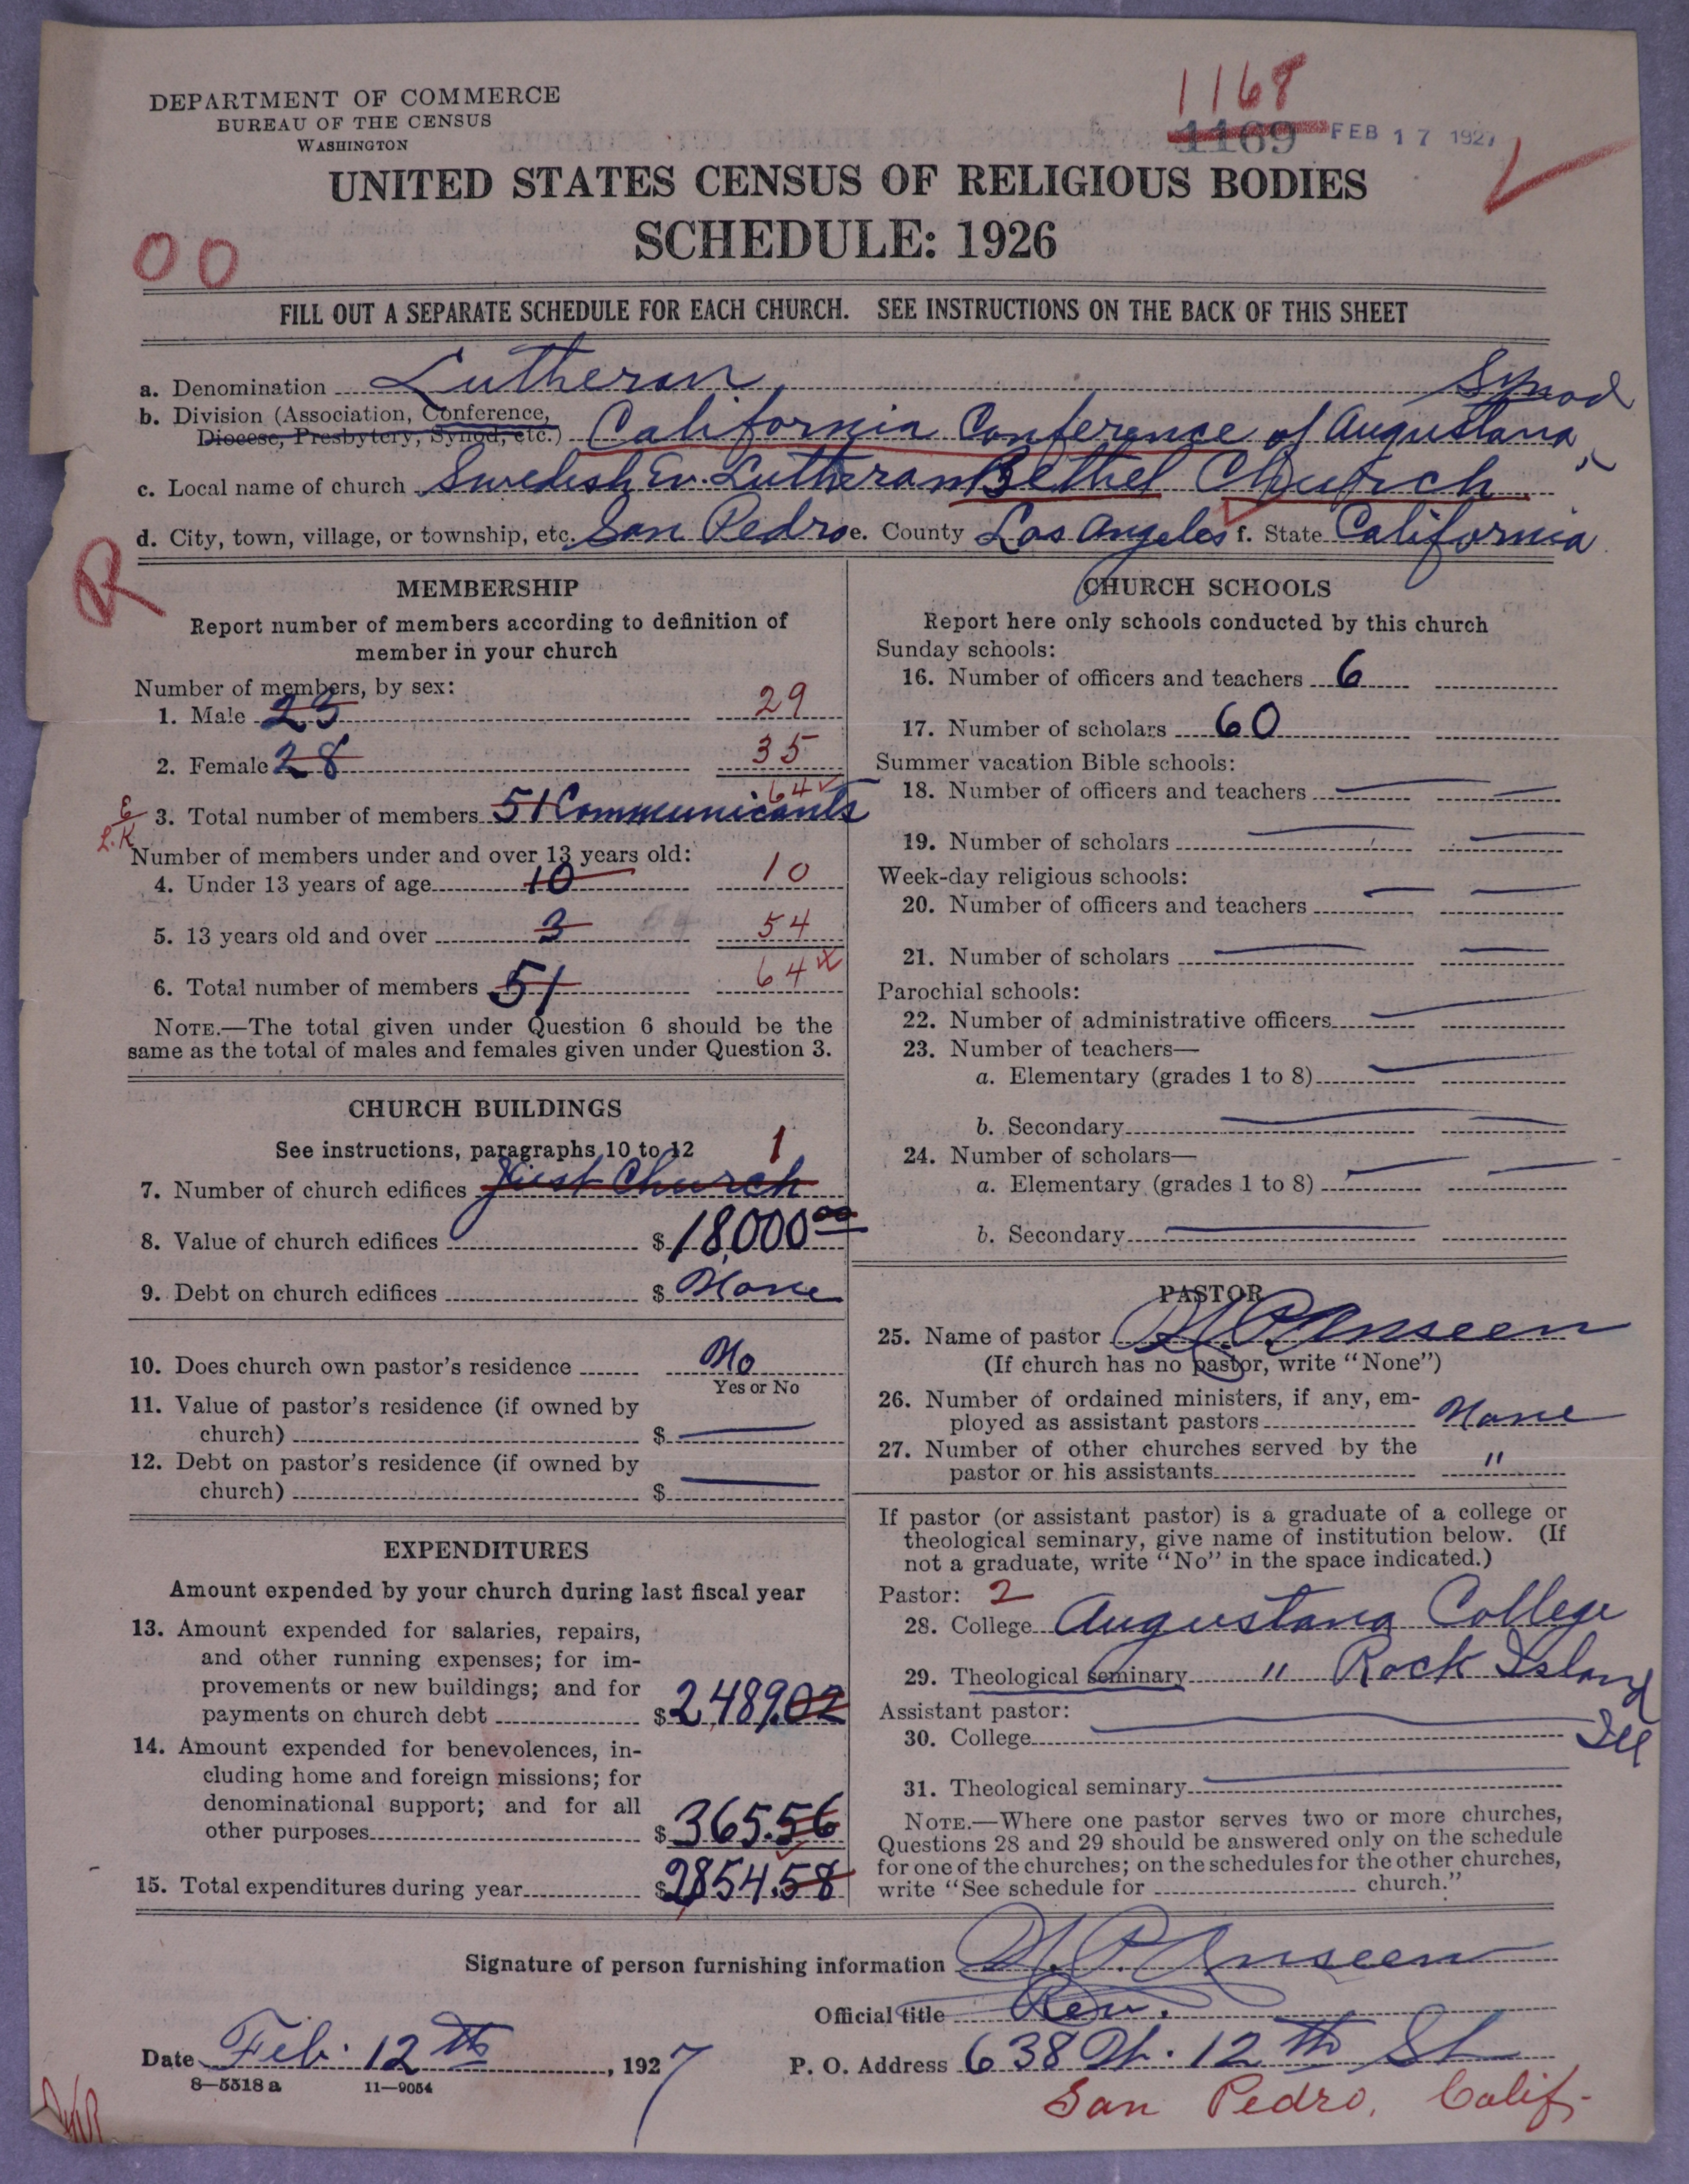 DEPARTMENT OF COMMERCE
BUREAU OF THE CENSUS
WASHINGTON
1168
1169 FEB 17 1927
UNITED STATES CENSUS OF RELIGIOUS BODIES
SCHEDULE: 1926
00
FILL OUT A SEPARATE SCHEDULE FOR EACH CHURCH. SEE INSTRUCTIONS ON THE BACK OF THIS SHEET
a. Denomination Lutheran
b. Division (Association, Conference, Synod
Diocese, Presbytery, Synod, etc.) California Conference of Augustana
c. Local name of church Swedish Ev. Lutheran Bethel Church
d. City, town, village, or township, etc. San Pedro e. County Los Angeles f. State California
R
MEMBERSHIP
Report number of members according to definition of
member in your church
Number of members, by sex:
1. Male 23 29
2. Female 28 35
64
3. Total number of members 51 Communicants
Number of members under and over 13 years old:
4. Under 13 years of age 10 10
5. 13 years old and over 3 54
6. Total number of members 51 64
NOTE.—The total given under Question 6 should be the
same as the total of males and females given under Question 3.
CHURCH BUILDINGS
See instructions, paragraphs 10 to 12 1
7. Number of church edifices just Church
8. Value of church edifices $ 18,000 00
9. Debt on church edifices $ None
10. Does church own pastor's residence No
Yes or No
11. Value of pastor's residence (if owned by
church) $
12. Debt on pastor's residence (if owned by
church) $
EXPENDITURES
Amount expended by your church during last fiscal year
13. Amount expended for salaries, repairs,
and other running expenses; for im-
provements or new buildings; and for
payments on church debt $ 2,489.02
14. Amount expended for benevolences, in-
cluding home and foreign missions; for
denominational support; and for all
other purposes $ 365.56
15. Total expenditures during year $ 2854.58
CHURCH SCHOOLS
Report here only schools conducted by this church
Sunday schools:
16. Number of officers and teachers 6
17. Number of scholars 60
Summer vacation Bible schools:
18. Number of officers and teachers
19. Number of scholars
Week-day religious schools:
20. Number of officers and teachers
21. Number of scholars
Parochial schools:
22. Number of administrative officers
23. Number of teachers—
a. Elementary (grades 1 to 8)
b. Secondary
24. Number of scholars—
a. Elementary (grades 1 to 8)
b. Secondary
PASTOR
25. Name of pastor N. P. Anseen
(If church has no pastor, write "None")
26. Number of ordained ministers, if any, em-
ployed as assistant pastors None
27. Number of other churches served by the
pastor or his assistants "
If pastor (or assistant pastor) is a graduate of a college or
theological seminary, give name of institution below. (If
not a graduate, write "No" in the space indicated.)
Pastor: 2
28. College Augustana College
29. Theological seminary " Rock Island
Ill
Assistant pastor:
30. College
31. Theological seminary
NOTE.—Where one pastor serves two or more churches,
Questions 28 and 29 should be answered only on the schedule
for one of the churches; on the schedules for the other churches,
write "See schedule for church."
Signature of person furnishing information N. P. Anseen
Official title Rev.
Date Feb. 12th, 1927
P. O. Address 638 W. 12th St
8—5518 a 11—9054
San Pedro, Calif.